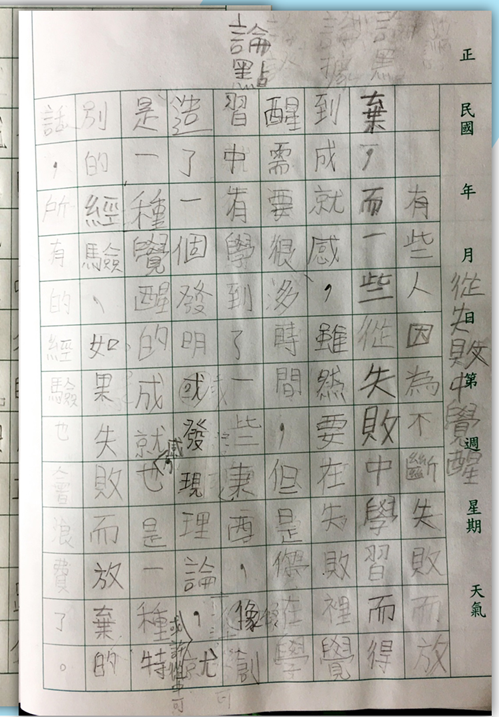 正 民國 年 月 日 第 週 星期 天氣
從失敗中覺醒
論點
有些人因為不斷失敗而放
棄，而一些從失敗中學習而得
到成就感，雖然要在失敗裡覺
醒需要很多時間，但是在學
習中有學到了一些，像創
造了一個發明或發現理論，就
是一種覺醒的成就感，也是一種特
別的經驗，如果失敗而放棄的
話，所有的經驗也會浪費了。